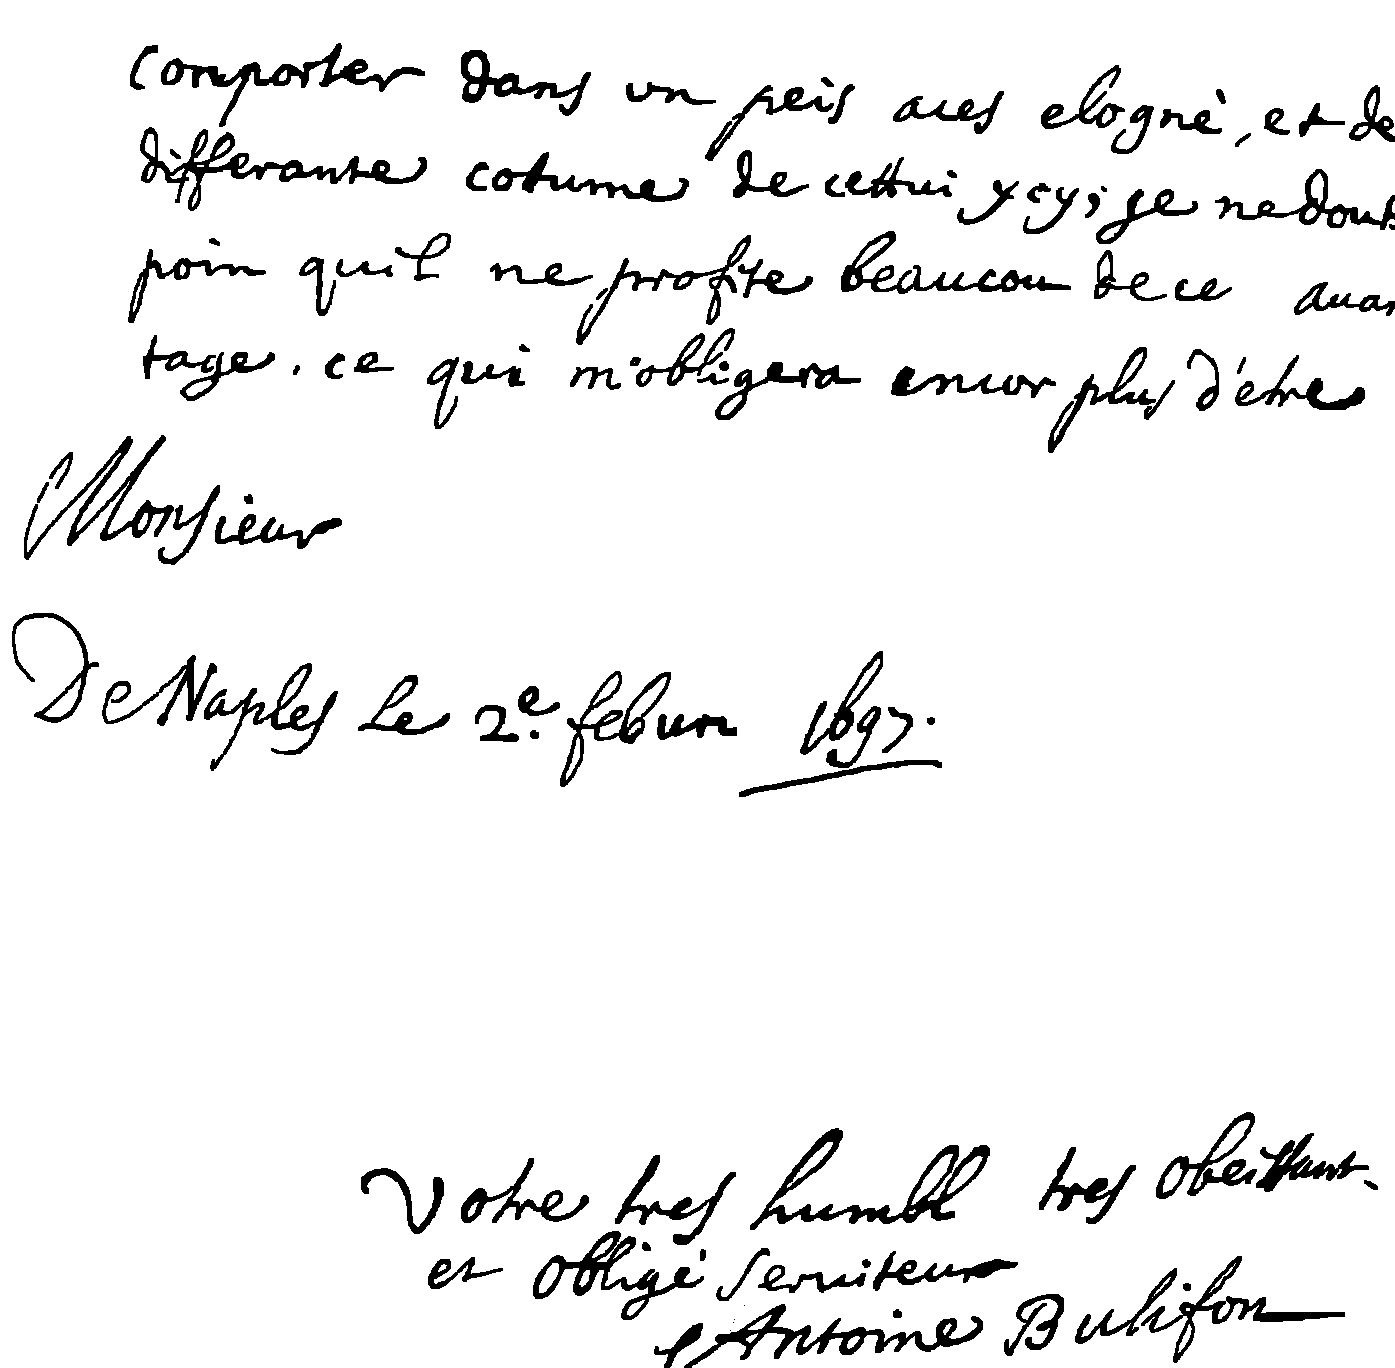 Comporter dans un peis aves elogné, et de
differante cotume de cettui ycy; je ne doute
poin quil ne profite beaucou de ce auan
tage. ce qui m'obligera encor plus d'etre
Monsieur
De Naples Le 2e. feburi 1697.
Votre tres humbl tres obeissant
et obligé seruiteur
Antoine Bulifon